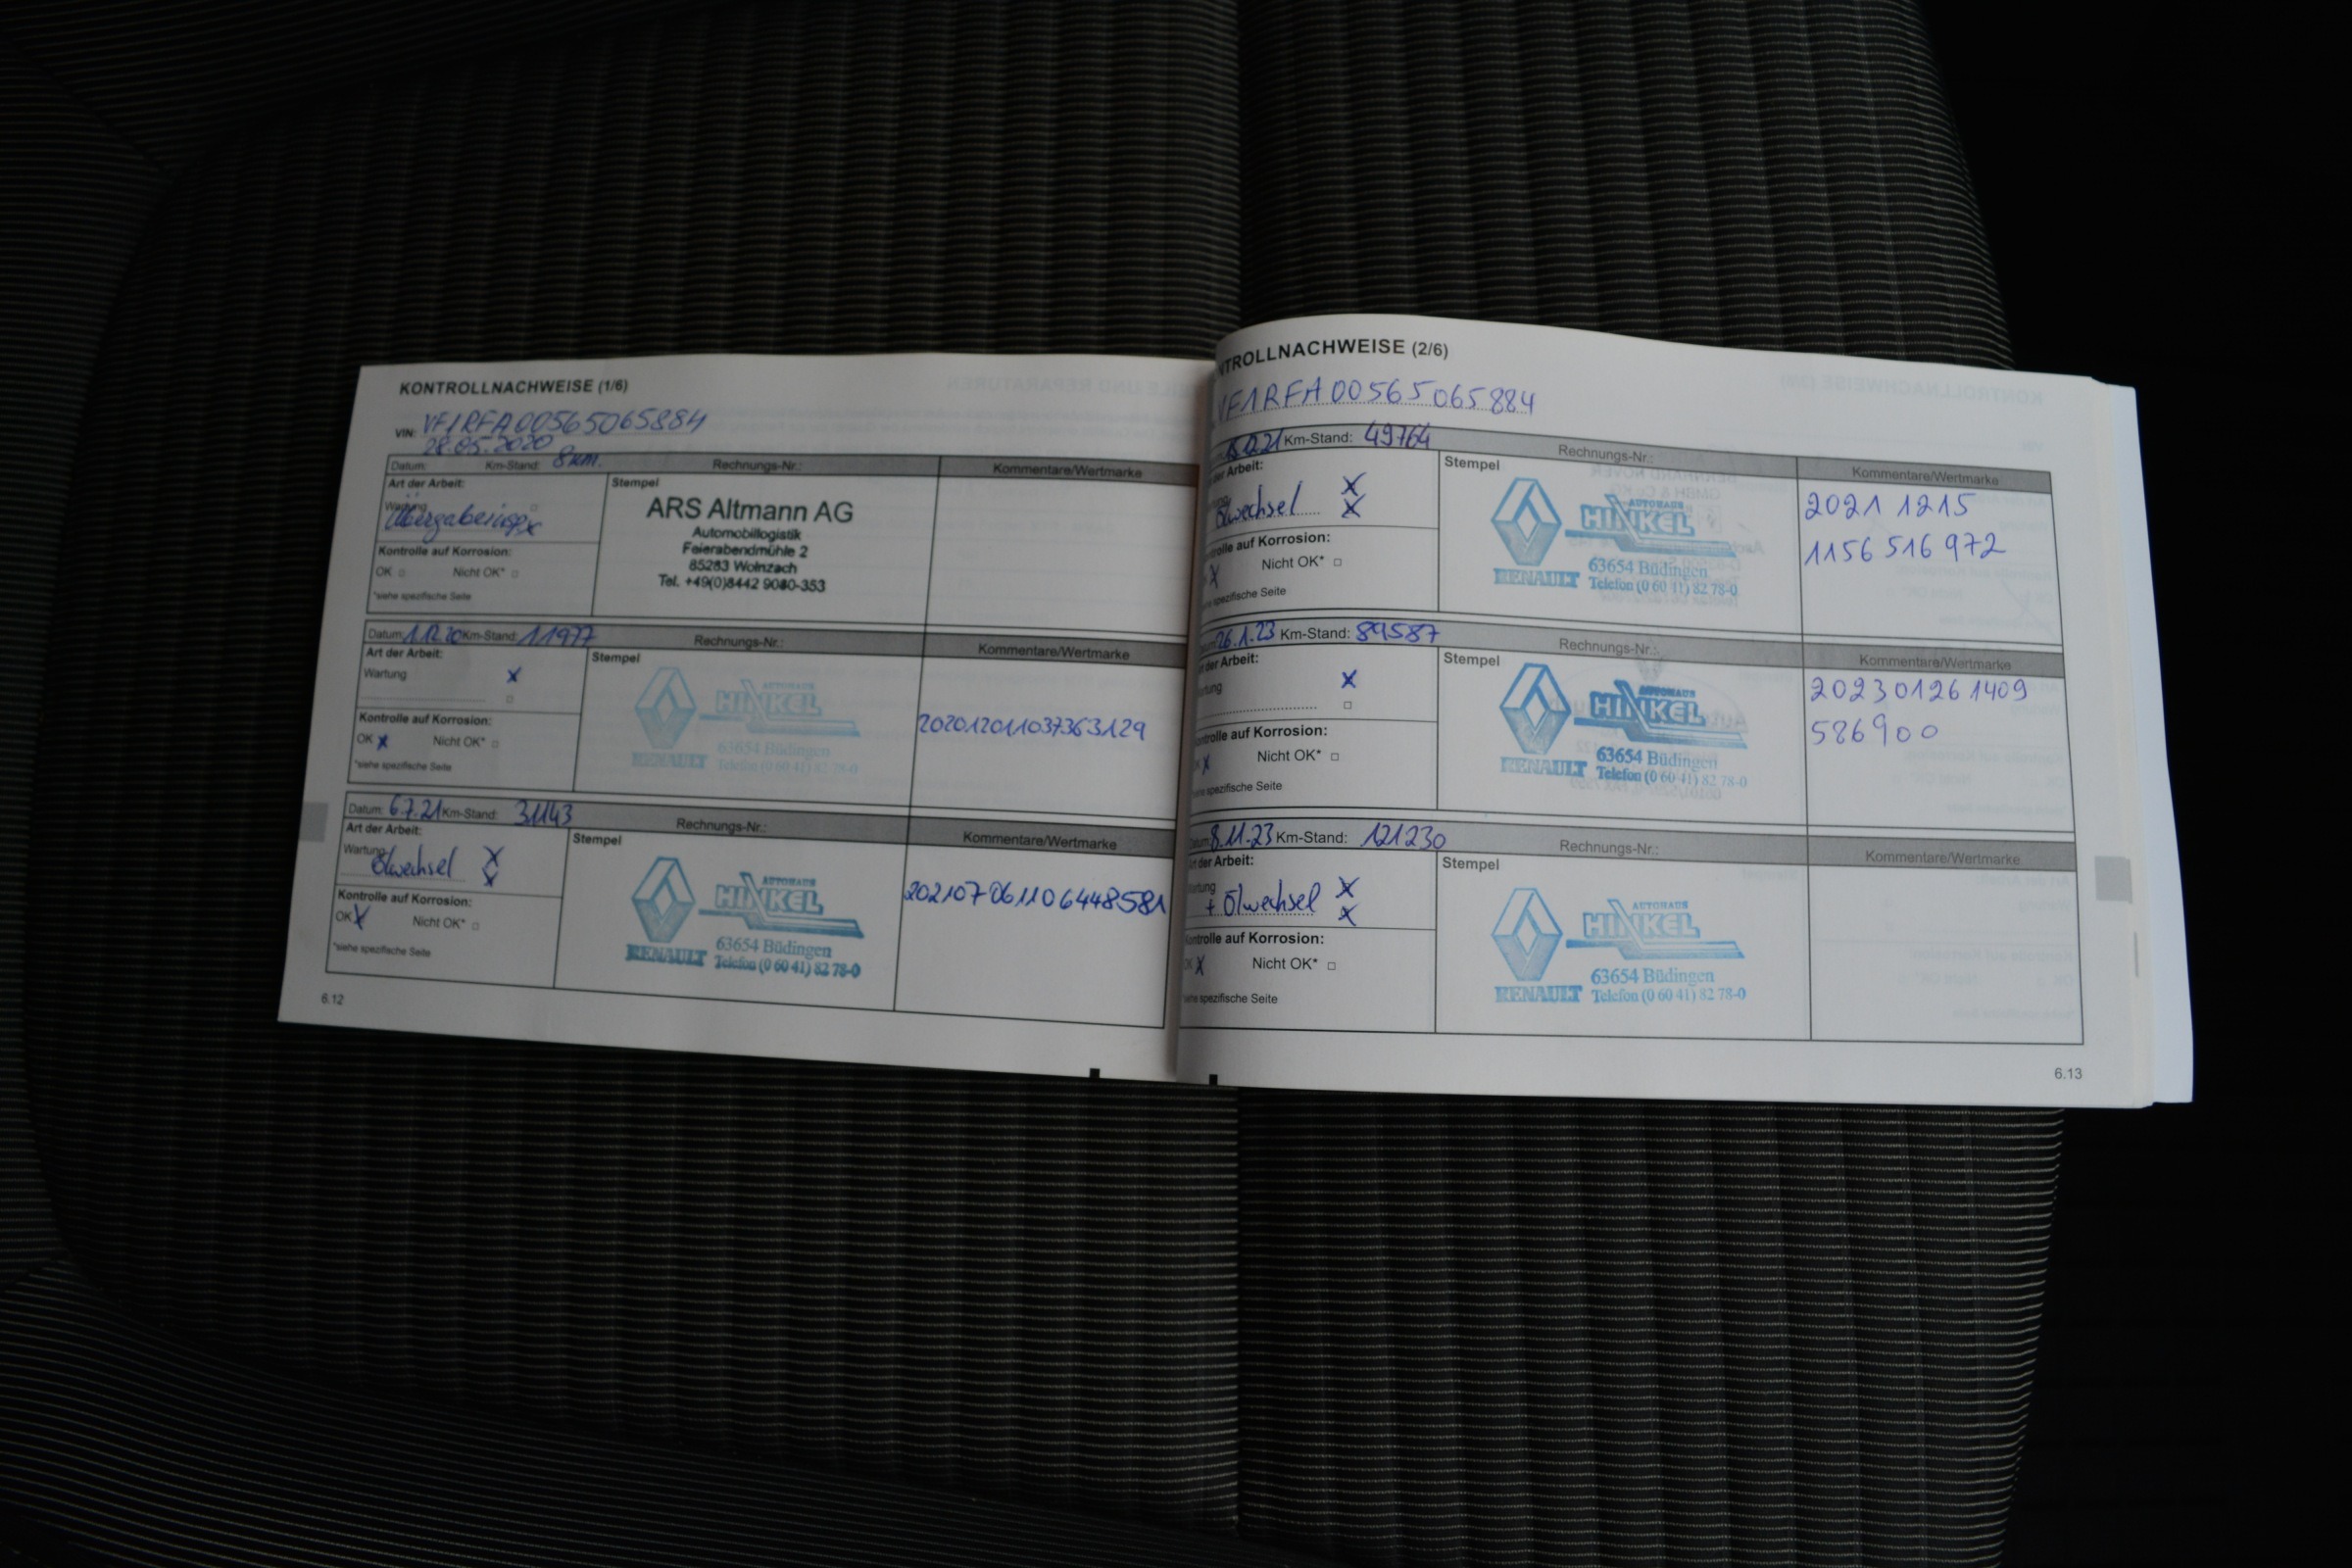 KONTROLLNACHWEISE (1/6)
VIN: VF1RFA00565065884
28.05.2020
Datum: Km-Stand: 8 km. Rechnungs-Nr.: Kommentare/Wertmarke
Art der Arbeit: Stempel
Wartung
Übergabeinsp.
Kontrolle auf Korrosion:
OK Nicht OK*
*siehe spezifische Seite
ARS Altmann AG
Automobillogistik
Feierabendmühle 2
85283 Wolnzach
Tel. +49(0)8442 9080-353
Datum: 1.12.20 Km-Stand: 11977 Rechnungs-Nr.: Kommentare/Wertmarke
Art der Arbeit: Stempel
Wartung X
Kontrolle auf Korrosion:
OK X Nicht OK*
*siehe spezifische Seite
AUTOHAUS
HINKEL
63654 Büdingen
RENAULT Telefon (0 60 41) 82 78-0
202012011037363129
Datum: 6.7.21 Km-Stand: 31143 Rechnungs-Nr.: Kommentare/Wertmarke
Art der Arbeit: Stempel
Wartung X
Ölwechsel X
Kontrolle auf Korrosion:
OK X Nicht OK*
*siehe spezifische Seite
AUTOHAUS
HINKEL
63654 Büdingen
RENAULT Telefon (0 60 41) 82 78-0
202107061106448581
6.12
NTROLLNACHWEISE (2/6)
VF1RFA00565065884
Km-Stand: 49764 Rechnungs-Nr.: Kommentare/Wertmarke
der Arbeit: Stempel
X
Ölwechsel X
trolle auf Korrosion:
X Nicht OK*
spezifische Seite
AUTOHAUS
HINKEL
63654 Büdingen
RENAULT Telefon (0 60 41) 82 78-0
2021 1215
1156 516 972
26.1.23 Km-Stand: 89587 Rechnungs-Nr.: Kommentare/Wertmarke
der Arbeit: Stempel
tung X
ontrolle auf Korrosion:
X Nicht OK*
siehe spezifische Seite
AUTOHAUS
HINKEL
63654 Büdingen
RENAULT Telefon (0 60 41) 82 78-0
202301261409
586900
Datum: 8.11.23 Km-Stand: 121230 Rechnungs-Nr.: Kommentare/Wertmarke
Art der Arbeit: Stempel
Wartung X
+ Ölwechsel X
Kontrolle auf Korrosion:
OK X Nicht OK*
siehe spezifische Seite
AUTOHAUS
HINKEL
63654 Büdingen
RENAULT Telefon (0 60 41) 82 78-0
6.13